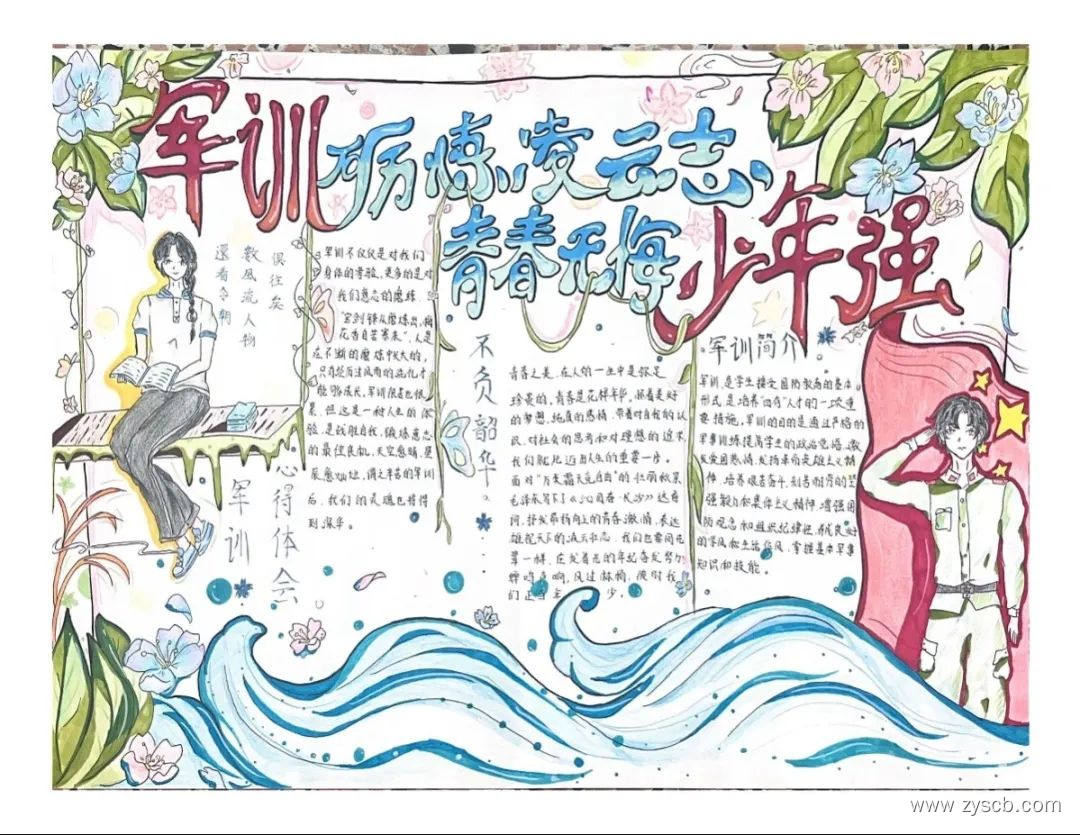 军训砺炼凌云志
青春无悔少年强
俱往矣
数风流人物
还看今朝
军训
心得体会。
军训不仅仅是对我们
身体的考验,更多的是对
我们意志的磨练
"宝剑锋从磨练出,梅
花香自苦寒来",人是
在不断的磨炼中长大的,
只有经历过风雨的洗化才
能够成长。军训很苦也很
累,但这是一种人生的体
验,是战胜自我,锻练意志
的最佳良机。天空愈暗,星
辰愈灿烂,
的军训
后,我们的灵魂也将得
到深华。
不负韶华。
青春之美,在人的一生中是弥足
珍贵的,青春是花样年华,
着美好
的梦想,纯真的感情,带着对自我的认
识,对社会的思考和对理想的追求,
我们就此迈出人生的重要一步。
面对"万类霜天竞自由"的壮丽秋景
毛泽东写下《沁园春·长沙》这首
词,抒发昂扬向上的青春激情,表达
雄视天下的凌云壮志。我们也要同先
辈一样,在发着光的年纪奋发努力
蝉鸣声响,风过林梢,彼时我
们正当年少。
军训简介。
军训,是学生接受国防教育的基本
形式,是培养"四有"人才的一项重
要措施,军训的目的是通过严格的
军事训练提高学生的政治觉悟,激
发爱国热情,发扬革命英雄主义精
神,培养艰苦奋斗,刻苦耐劳的坚
强毅力和集体主义精神,增强国
防观念和组织纪律性,养成良好
的学风和生活作风,掌握基本军事
知识和技能。
www.zyscb.com